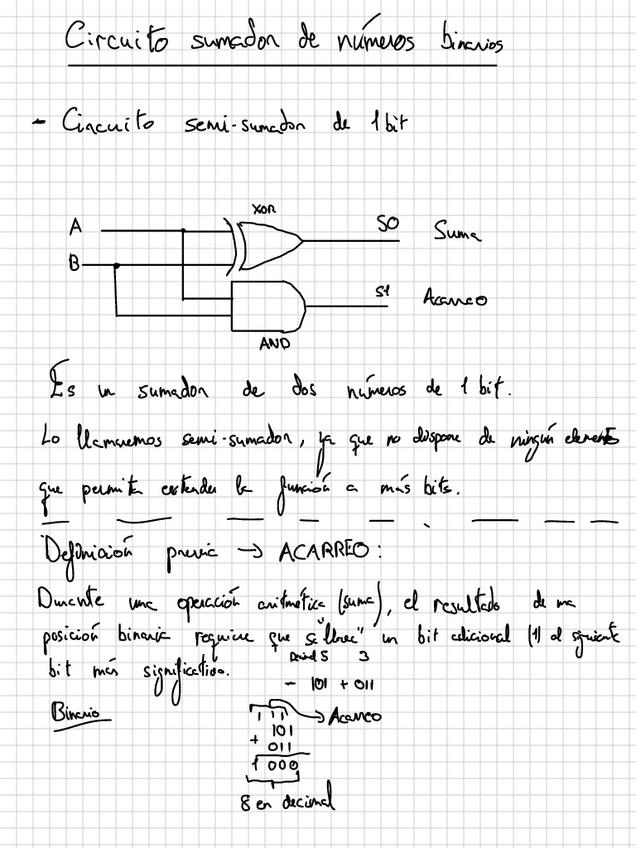 Circuito sumador de números binarios
- Circuito semi-sumador de 1 bit
XOR
A
S0 Suma
B
S1 Acarreo
AND
Es un sumador de dos números de 1 bit.
Lo llamaremos semi-sumador, ya que no dispone de ningún elemento
que permita extender la función a más bits.
Definición previa → ACARREO:
Durante una operación aritmética (suma), el resultado de una
posición binaria requiere que se "lleve" un bit adicional (1) al siguiente
bit más significativo.
Decimal 5 3
- 101 + 011
Binario
1 1 1 → Acarreo
101
+ 011
1 000
8 en decimal